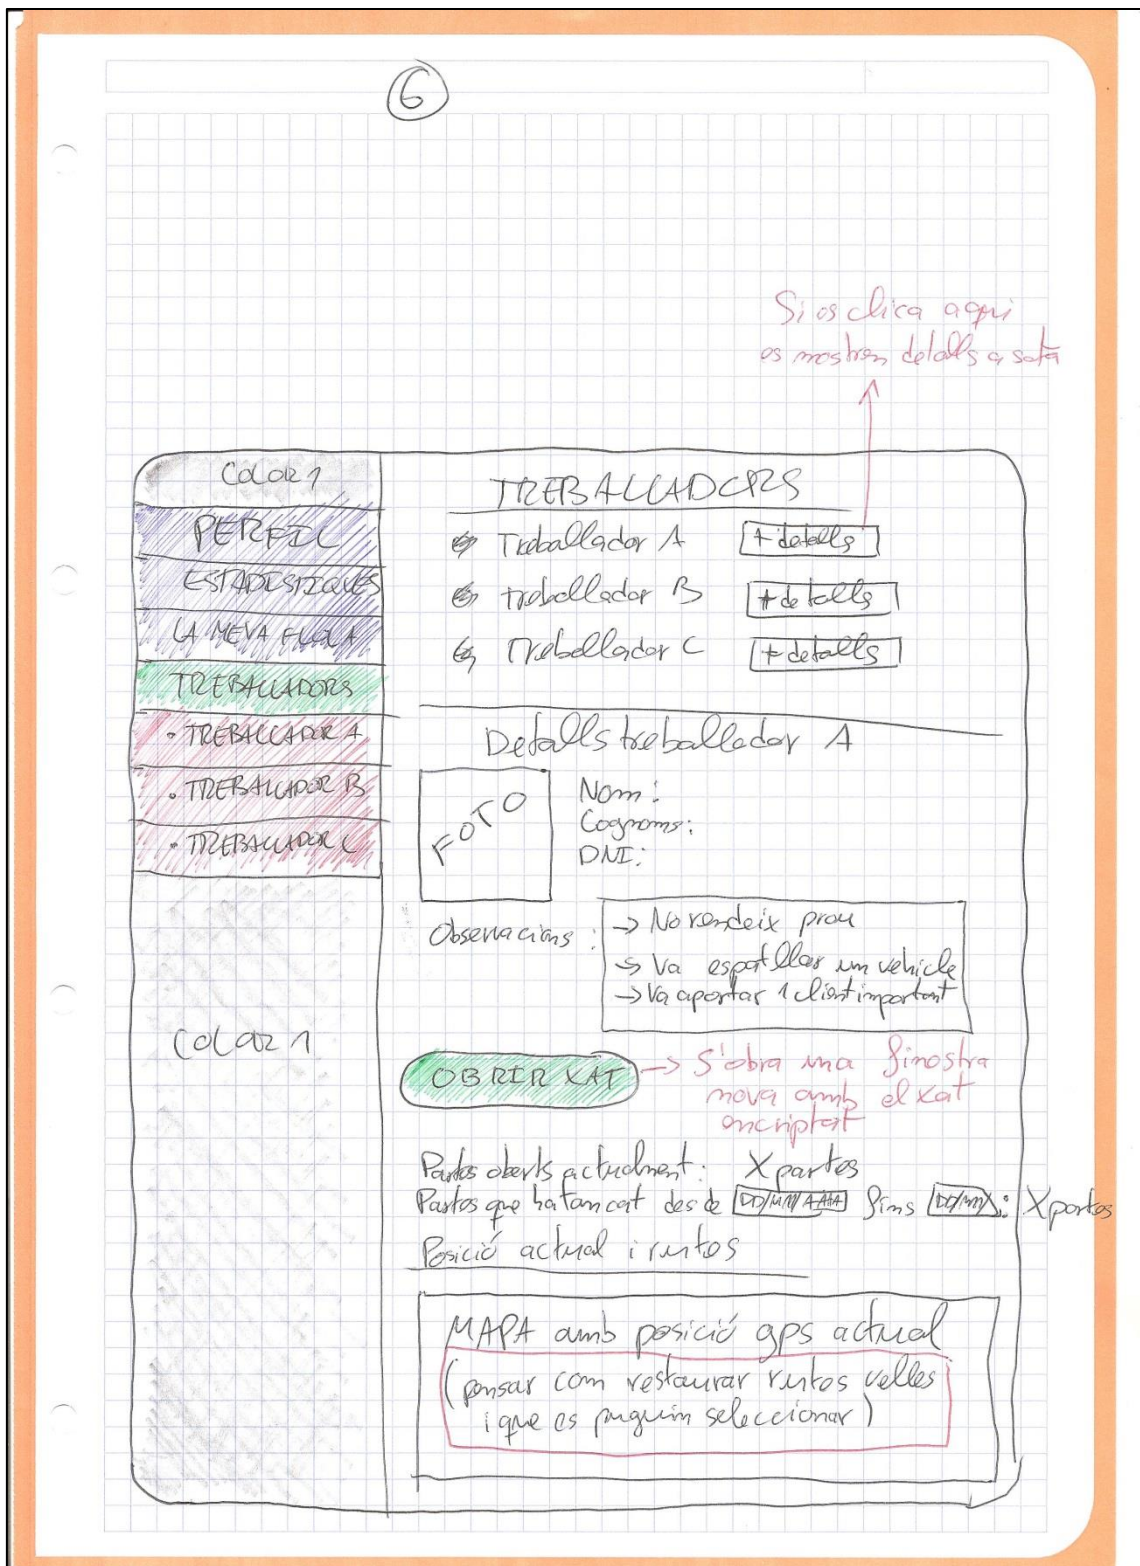 6
Si es clica aqui
es mostren detalls a sota
COLOR 1
PERFIL
ESTADISTIQUES
LA MEVA FLOTA
TREBALLADORS
• TREBALLADOR A
• TREBALLADOR B
• TREBALLADOR C
COLOR 1
TREBALLADORS
Treballador A + detalls
treballador B + detalls
Treballador C + detalls
Detalls treballador A
FOTO
Nom:
Cognoms:
DNI:
Observacions:
→ No rendeix prou
→ Va espatllar un vehicle
→ Va aportar 1 client important
OBRIR XAT
→ S'obra una finestra
nova amb el xat
encriptat
Partes oberts actualment: X partes
Partes que ha tancat des de DD/MM/AAAA fins DD/MM/: X partes
Posició actual i rutes
MAPA amb posició gps actual
(pensar com restaurar rutes velles
i que es puguin seleccionar)